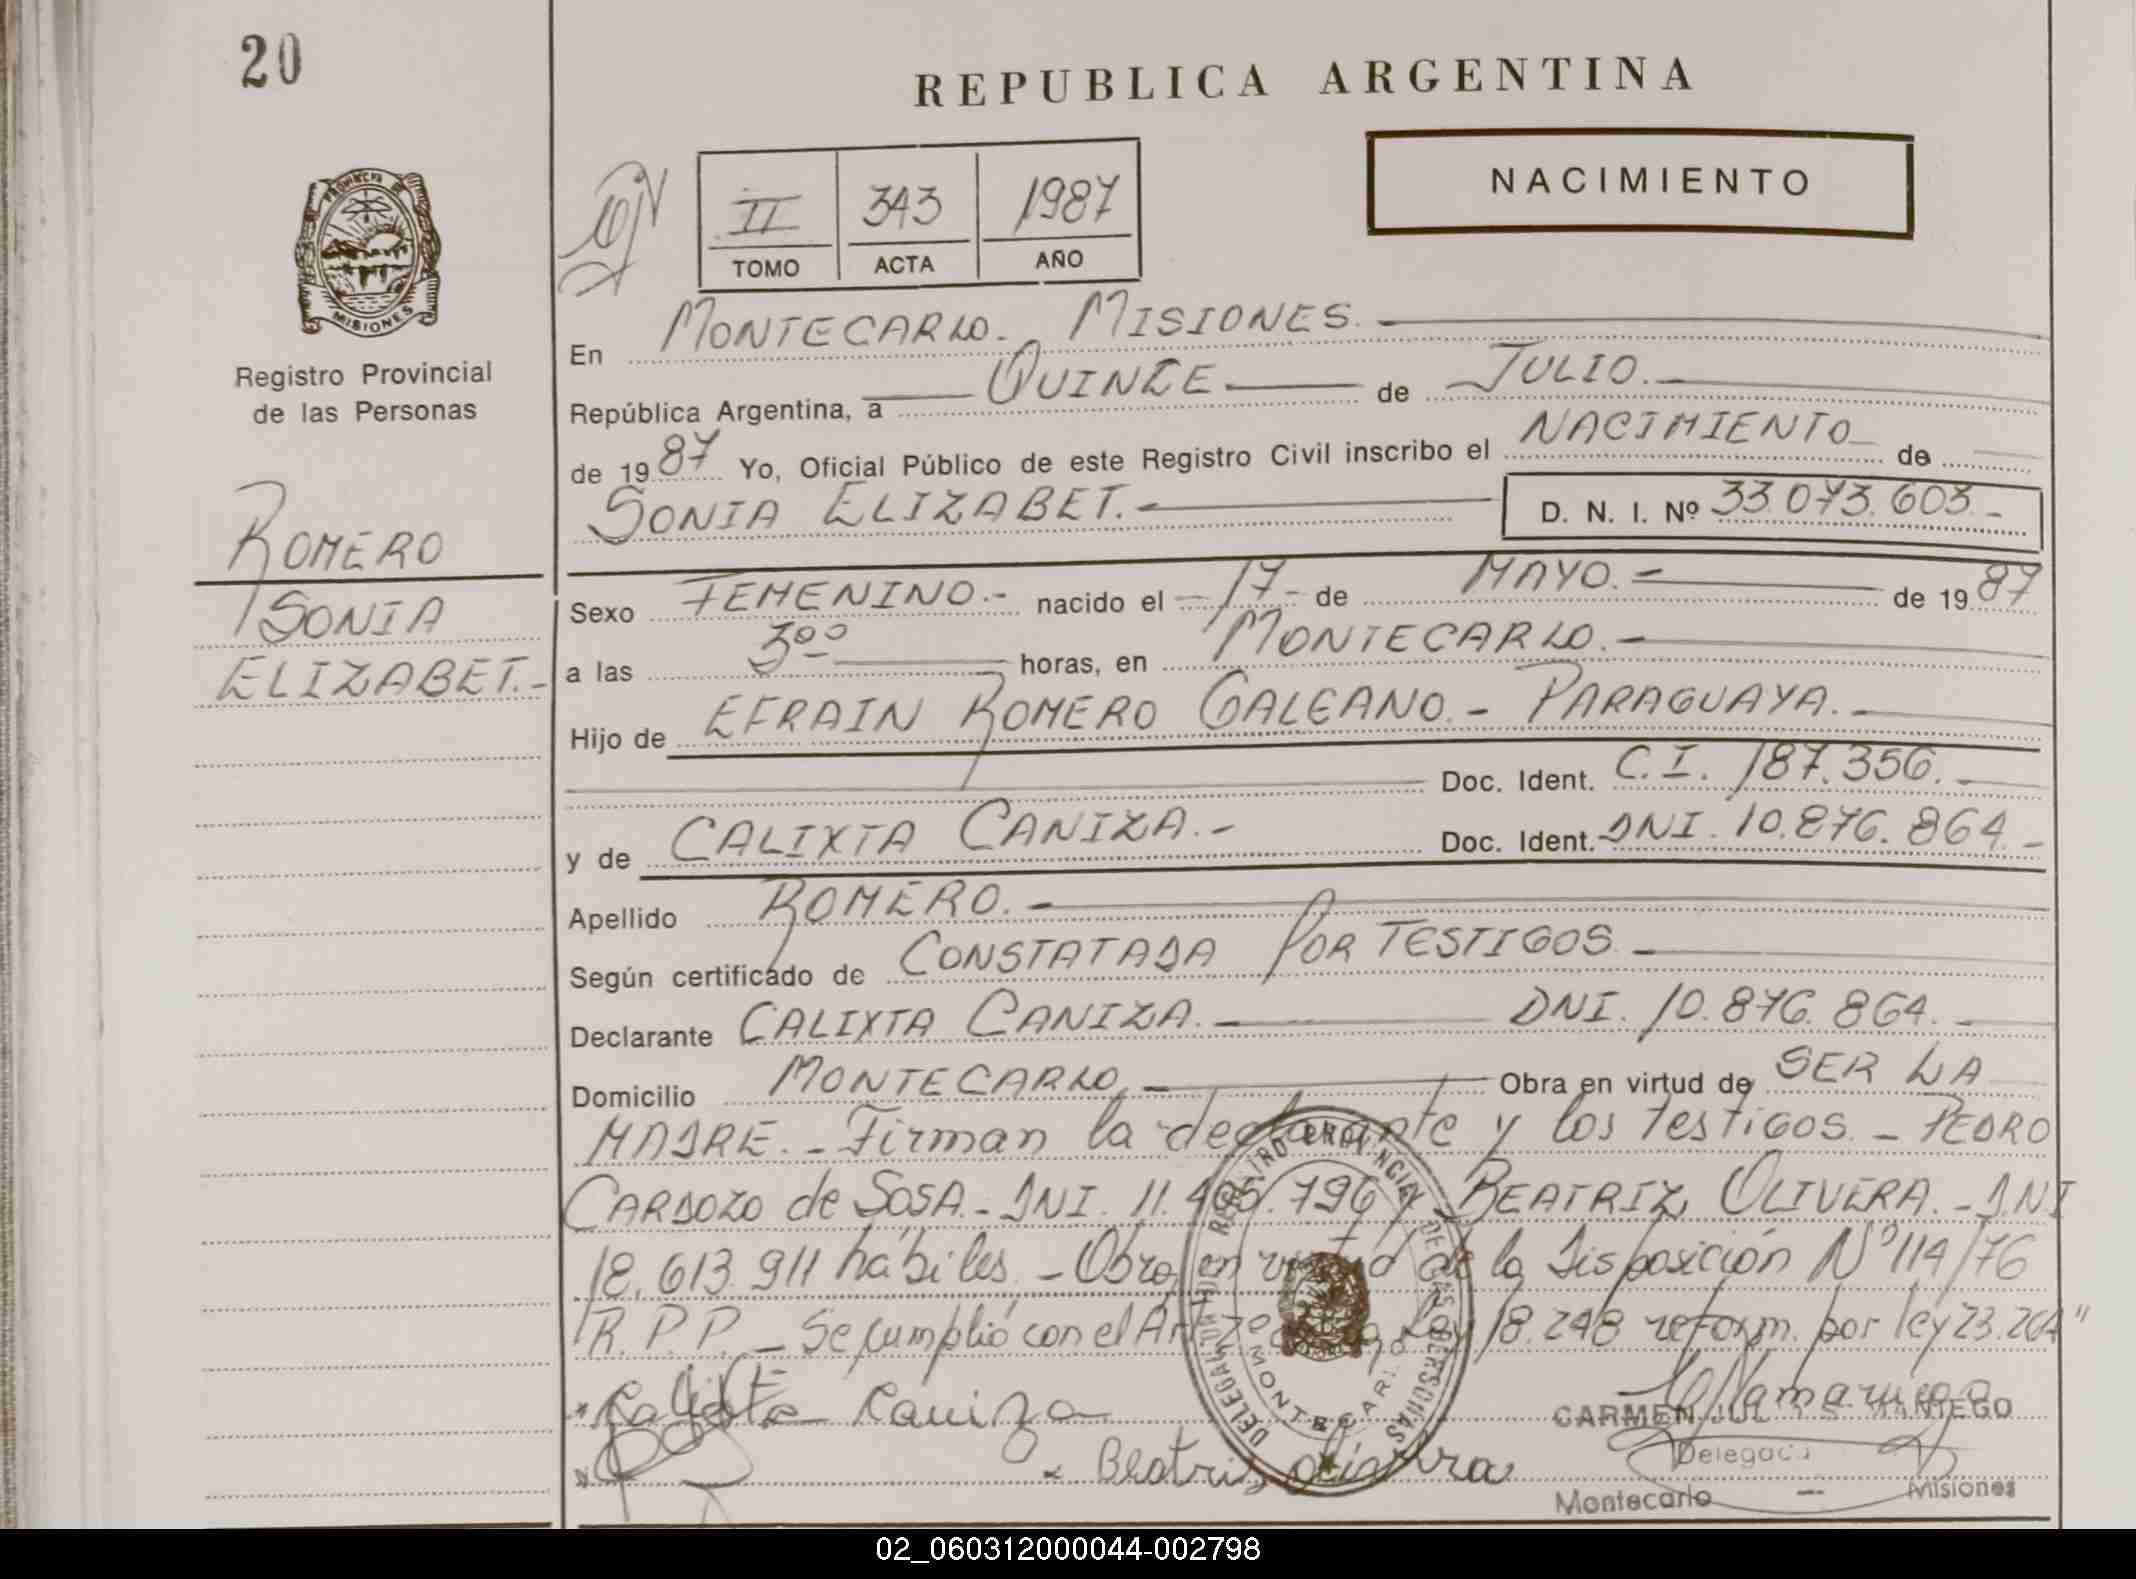 20
REPUBLICA ARGENTINA
NACIMIENTO
II 343 1987
TOMO ACTA AÑO
PROVINCIA DE
MISIONES
Registro Provincial
de las Personas
ROMERO
SONIA
ELIZABET.-
En MONTECARLO. MISIONES.-
República Argentina, a QUINCE de JULIO.-
de 1987 Yo, Oficial Público de este Registro Civil inscribo el NACIMIENTO de
SONIA ELIZABET.- D. N. I. Nº 33.073.603.-
Sexo FEMENINO.- nacido el -17- de MAYO.- de 1987
a las 3ºº horas, en MONTECARLO.-
Hijo de EFRAIN ROMERO GALEANO.- PARAGUAYA.-
Doc. Ident. C.I. 187.356.-
y de CALIXTA CANIZA.- Doc. Ident. DNI. 10.876.864.-
Apellido ROMERO.-
Según certificado de CONSTATADA POR TESTIGOS.-
Declarante CALIXTA CANIZA.- DNI. 10.876.864.-
Domicilio MONTECARLO.- Obra en virtud de SER LA
MADRE.- Firman la declarante y los TESTIGOS.- PEDRO
CARDOZO de SOSA.- DNI. 11.495.796 y BEATRIZ OLIVERA.- DNI
18.613.911 hábiles.- Obra en virtud de la Disposición Nº 114/76
R.P.P.- Se cumplió con el Art 2º Ley 18.248 reform. por ley 23.264"
Calixta Caniza
Beatriz Olivera
REGISTRO PROVINCIAL DE LAS PERSONAS
MONTECARLO
CARMEN
Delegada
Montecarlo - Misiones
02_060312000044-002798